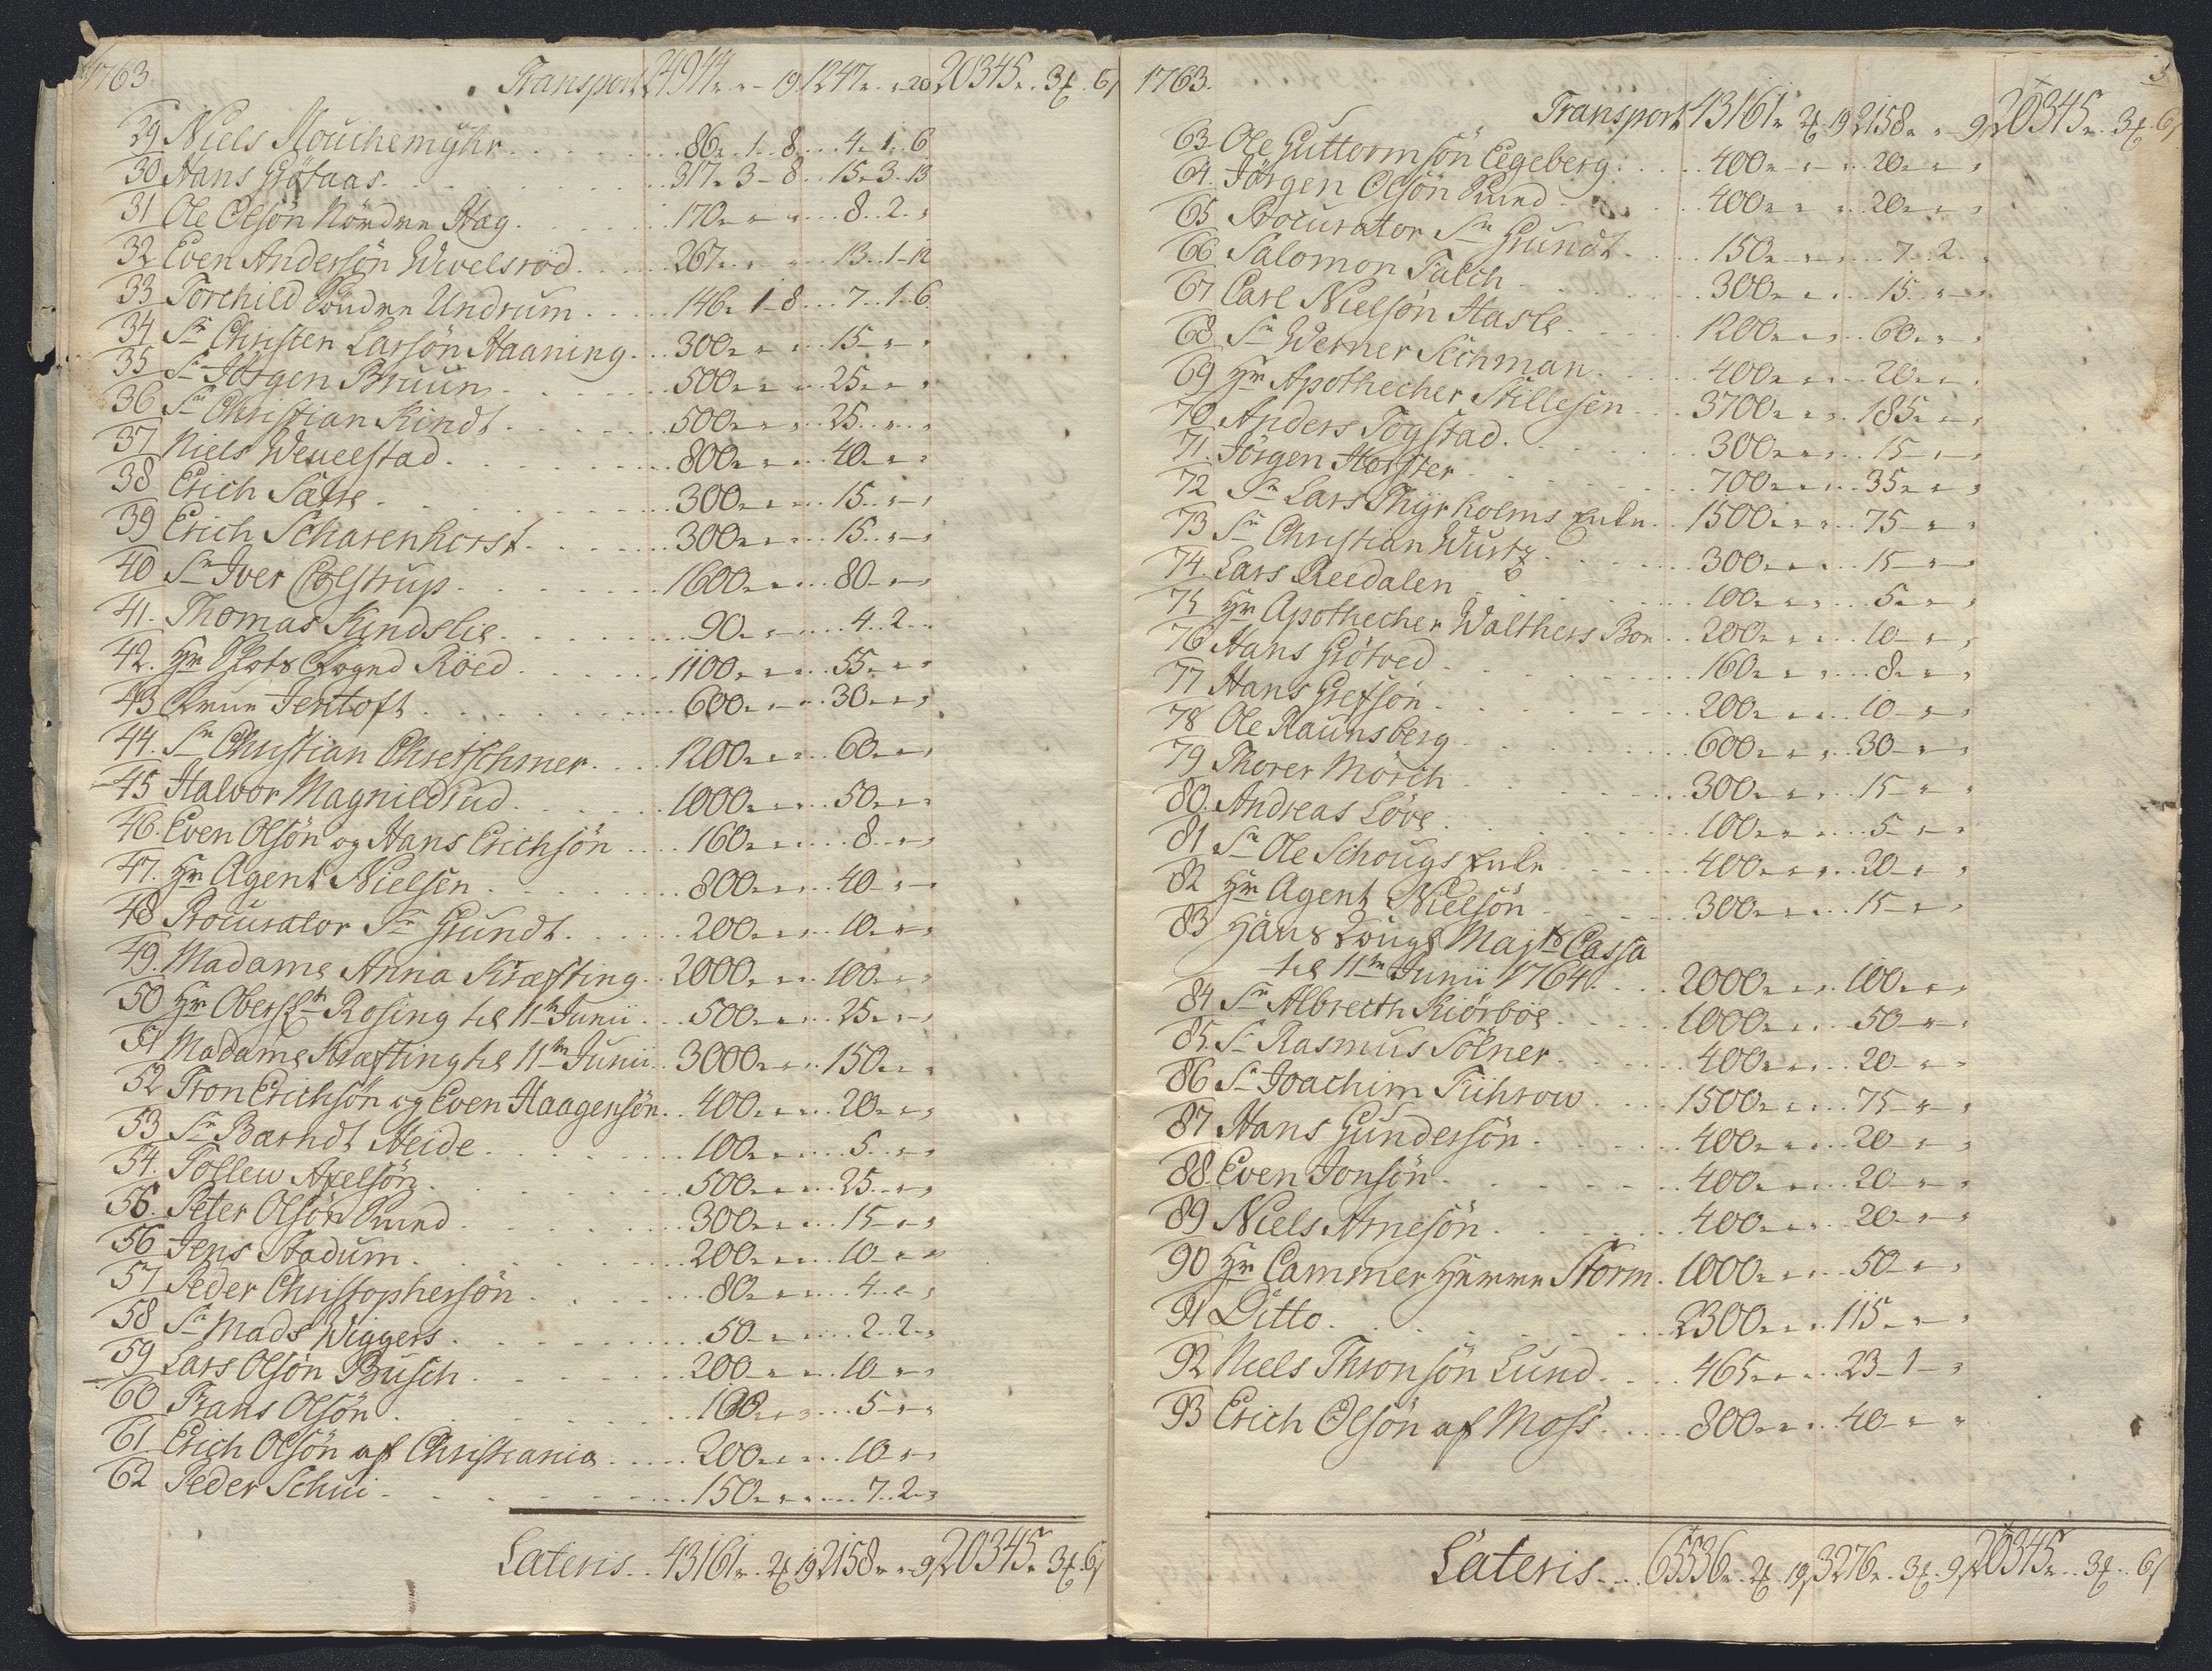 1763.
Transport 24944 „ „ - 19 1247 „ „ 20 20345 „ 3 „ 6
29 Niels Mouchemyhr 86 „ 1 „ 8 4 „ 1 „ 6
30 Hans Grötaas 317 „ 3 - 8 15 „ 3 „ 13
31 Ole Olsön Nördre Hag 170 „ „ „ 8 „ 2 „
32 Even Andersön Wivelsröd 267 „ „ „ 13 „ 1 - 12
33 Torchild Söndre Undrum 146 „ 1 - 8 7 „ 1 „ 6
34 Sr Christen Larsön Haaning 300 „ „ „ 15 „ „
35 Sr Jörgen Bruun 500 „ „ „ 25 „ „
36 Sr Christian Kindt 500 „ „ „ 25 „ „
37 Niels Weueestad 800 „ „ „ 40 „ „
38 Erich Sætre 300 „ „ „ 15 „ „
39 Erich Scharenhorst 300 „ „ „ 15 „ „
40 Sr Iver Colstrup 1600 „ „ „ 80 „ „
41. Thomas Kindslie 90 „ „ „ 4 „ 2 „
42. Hr Slots Fogd Röed 1100 „ „ „ 55 „ „
43 Frue Jentoft 600 „ „ „ 30 „ „
44. Sr Christian Chretschmer 1200 „ „ „ 60 „ „
45 Halvor Magnildrud 1000 „ „ „ 50 „ „
46. Even Olsön og Hans Erichsön 160 „ „ „ 8 „ „
47. Hr Agent Nielsen 800 „ „ „ 40 „ „
48 Procurator Sr Grundt 200 „ „ „ 10 „ „
49. Madame Anna Kræfting 2000 „ „ „ 100 „ „
50 Hr Oberstlt Rosing til 11te Junii 500 „ „ „ 25 „ „
51 Madame Kræfting til 11te Junii 3000 „ „ „ 150 „ „
52 Tron Erichsön og Even Haagensön 400 „ „ „ 20 „ „
53 Sr Barndt Heide 100 „ „ „ 5 „ „
54. Tollew Axelsön 500 „ „ „ 25 „ „
55. Peter Olsön Sund 300 „ „ „ 15 „ „
56 Jens Stadum 200 „ „ „ 10 „ „
57 Peder Christophersön 80 „ „ „ 4 „ „
58 Sr Mads Wiggers 50 „ „ „ 2 „ 2 „
59 Lars Olsön Busch 200 „ „ „ 10 „ „
60 Frans Olsön 100 „ „ „ 5 „ „
61 Erich Olsön af Christiania 200 „ „ „ 10 „ „
62 Peder Schui 150 „ „ „ 7 „ 2 „
Lateris 43161 „ 2 „ 19 2158 „ „ 9 20345 „ 3 „ 6
1763.
Transport 43161 „ 2 „ 19 2158 „ „ 9 20345 „ 3 „ 6
63 Ole Guttormsön Eegeberg 400 „ „ „ 20 „ „
64. Jörgen Olsön Sund 400 „ „ „ 20 „ „
65 Procurator Sr Grundt 150 „ „ „ 7 „ 2 „
66 Salomon Falch 300 „ „ „ 15 „ „
67 Carl Nielsön Hasle 1200 „ „ „ 60 „ „
68 Sr Werner Sechman 400 „ „ „ 20 „ „
69 Hr Apothecher Stillesen 3700 „ „ „ 185 „ „
70 Anders Togstad 300 „ „ „ 15 „ „
71. Jörgen Horster 700 „ „ „ 35 „ „
72 Sr Lars Thyrholms Enke 1500 „ „ „ 75 „ „
73 Sr Christian Wurtz 300 „ „ „ 15 „ „
74. Lars Reedalen 100 „ „ „ 5 „ „
75 Hr Apothecher Walthers Boe 200 „ „ „ 10 „ „
76 Hans Grötved 160 „ „ „ 8 „ „
77 Hans Grefsön 200 „ „ „ 10 „ „
78 Ole Raunsberg 600 „ „ „ 30 „ „
79 Thorer Mörch 300 „ „ „ 15 „ „
80. Andreas Löve 100 „ „ „ 5 „ „
81 Sr Ole Schougs Enke 400 „ „ „ 20 „ „
82 Hr Agent Nielsön 300 „ „ „ 15 „ „
83 Hans Kongl Majts Cassa
til 11te Junii 1764 2000 „ „ „ 100 „ „
84 Sr Albrecth Kiörboe 1000 „ „ „ 50 „ „
85. Sr Rasmus Sölner 400 „ „ „ 20 „ „
86 Sr Joachim Führow 1500 „ „ „ 75 „ „
87 Hans Gundersön 400 „ „ „ 20 „ „
88. Even Jonsön 400 „ „ „ 20 „ „
89 Niels Arnesön 400 „ „ „ 20 „ „
90 Hr Cammer Herre Storm 1000 „ „ „ 50 „ „
91 Ditto 2300 „ „ „ 115 „ „
92 Niels Thronsön Lund 465 „ „ „ 23 - 1 „
93 Erich Olsön af Moss 800 „ „ „ 40 „ „
Lateris 65536 „ 2 „ 19 3276 „ 3 „ 9 20345 „ 3 „ 6